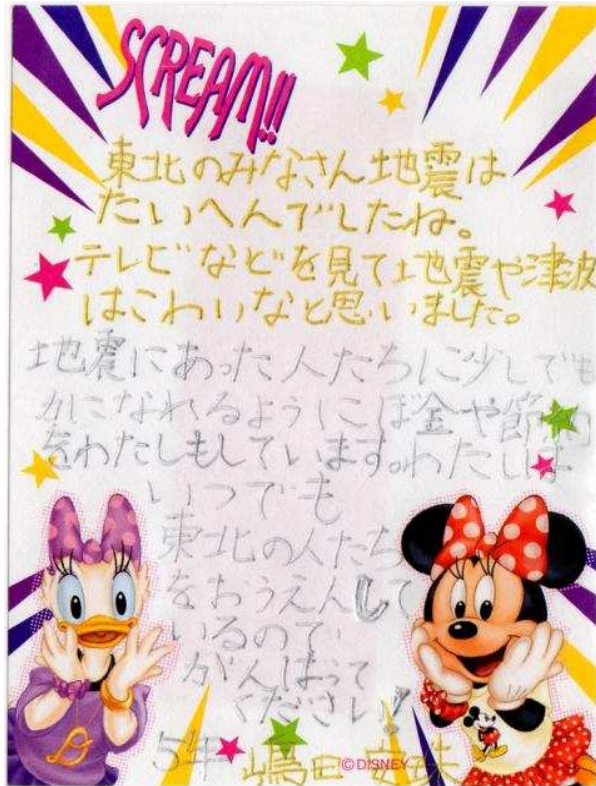 SCREAM!!
東北のみなさん地震は
たいへんでしたね。
テレビなどを見て地震や津波
はこわいなと思いました。
地震にあった人たちに少しでも
力になれるようにぼ金や節約
をわたしもしています。わたしは
いつでも
東北の人たち
をおうえんして
いるので
がんばって
ください!
5年 嶋田
©DISNEY